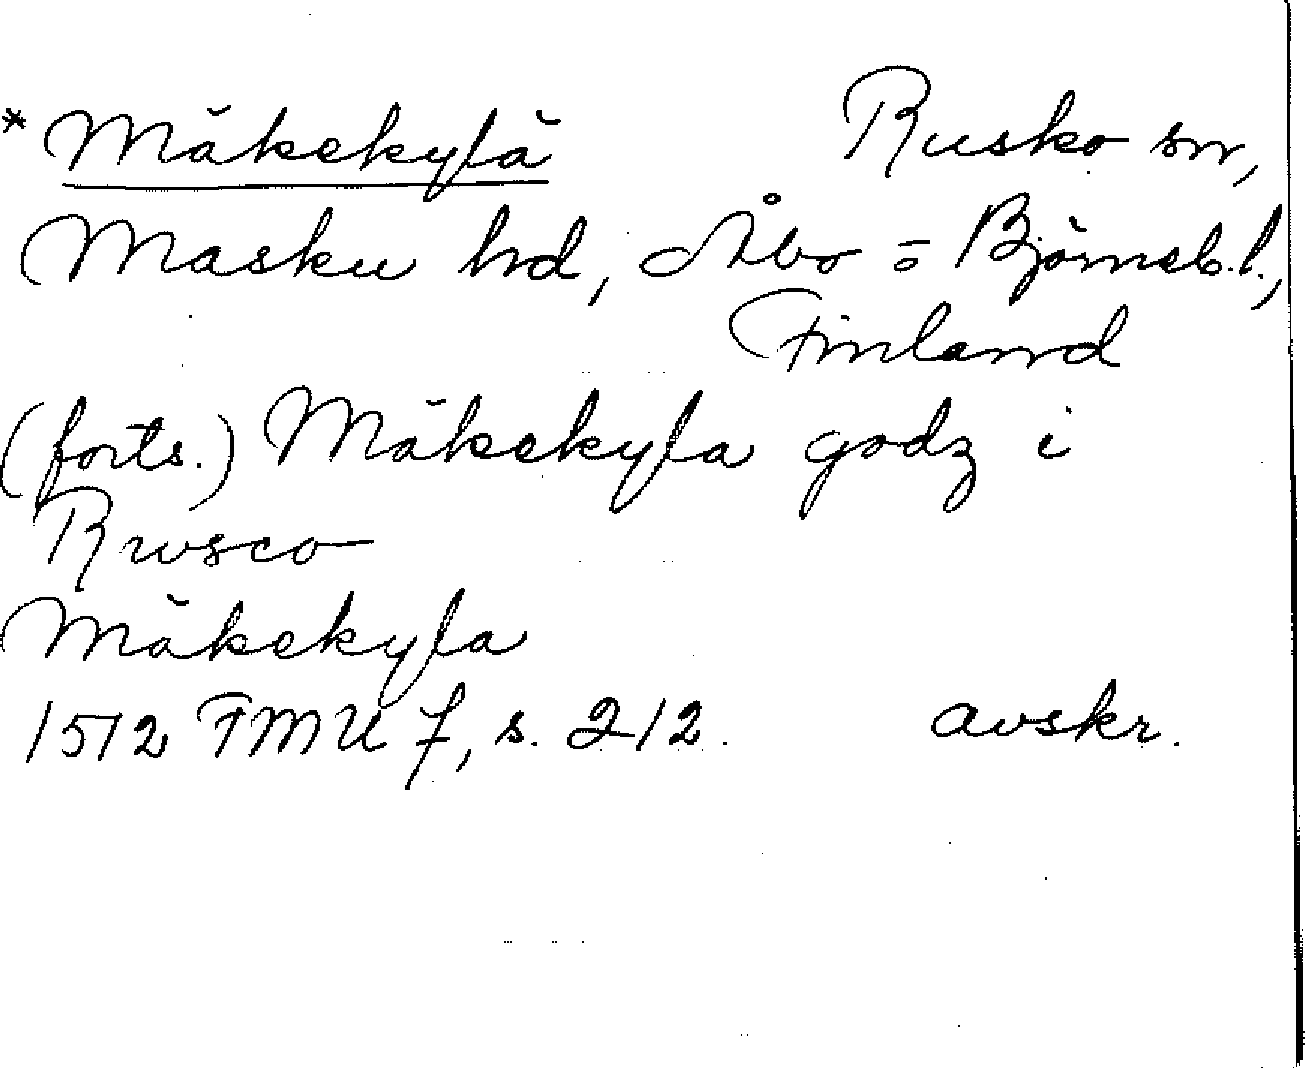 *Mäkekylä Rusko sn,
Masku hd, Åbo = Björneb. l.,
Finland
(forts.) Mäkekyla godz i
Rwsco
Mäkekyla
1512 FMU 7, s. 212. avskr.